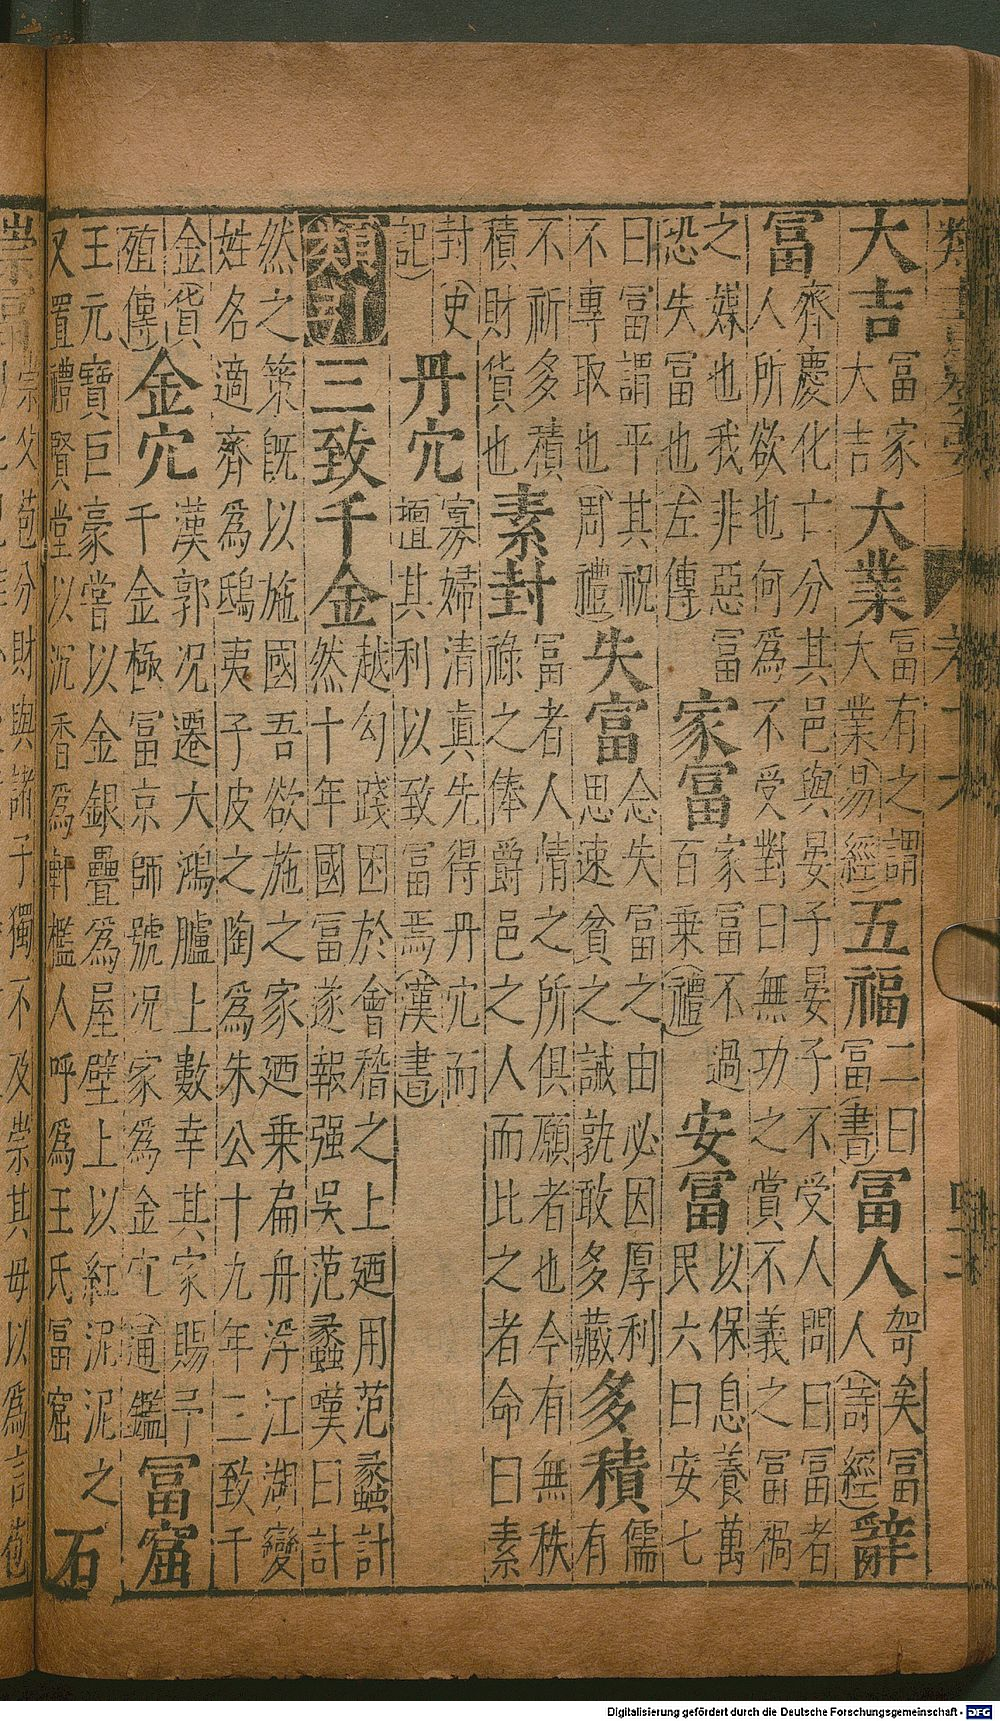 大吉富家大吉大業富有之謂大業(易經)五福二曰富(書)富人哿矣富人(詩經)辭
富齊慶化亡分其邑與晏子晏子不受人問曰富者
人所欲也何爲不受對曰無功之賞不義之富禍
之媒也我非惡富
恐失富也(左傳)家富家富不過百乘(禮)安富以保息養萬民六曰安七
曰富謂平其祝
不專取也(周禮)失富念失富之由必因厚利思速貧之誠孰敢多藏多積儒有
不祈多積
積財貨也素封富者人情之所俱願者也今有無秩祿之俸爵邑之人而比之者命曰素
封(史記)丹穴寡婦清真先得丹穴而擅其利以致富焉(漢書)
三致千金越勾踐困於會稽之上廼用范蠡計然十年國富遂報强吳范蠡嘆曰計
然之策既以施國吾欲施之家廼乘扁舟浮江湖變
姓名適齊爲鴟夷子皮之陶爲朱公十九年三致千
金(貨殖傳)金穴漢郭况遷大鴻臚上數幸其家賜予千金極富京師號况家爲金穴(通鑑富窟
王元寶巨豪嘗以金銀疊爲屋壁上以紅泥泥之
又置禮賢堂以沉香爲軒檻人呼爲王氏富窟石
父苞分財與諸子獨不及崇其母以爲言苞
Digitalisierung gefördert durch die Deutsche Forschungsgemeinschaft - DFG